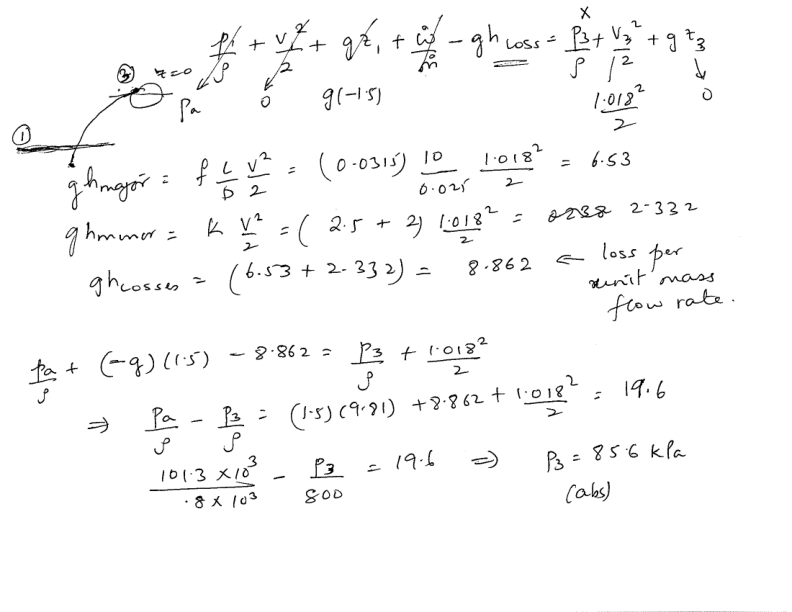 p1/ρ + V1²/2 + gz1 + ẇ/ṁ − gh Loss = P3/ρ + V3²/2 + gz3
x
③ z=0
Pa 0 g(-1.5) 1.018²/2 0
①
ghmajor = f L/D V²/2 = (0.0315) 10/0.025 1.018²/2 = 6.53
ghminor = K V²/2 = (2.5 + 2) 1.018²/2 = 2.332
ghLosses = (6.53 + 2.332) = 8.862 ← loss per
unit mass
flow rate.
Pa/ρ + (-g)(1.5) − 8.862 = P3/ρ + 1.018²/2
⇒ Pa/ρ − P3/ρ = (1.5)(9.81) + 8.862 + 1.018²/2 = 19.6
101.3 x10³/.8 x 10³ − P3/800 = 19.6 ⇒ P3 = 85.6 kPa
(abs)